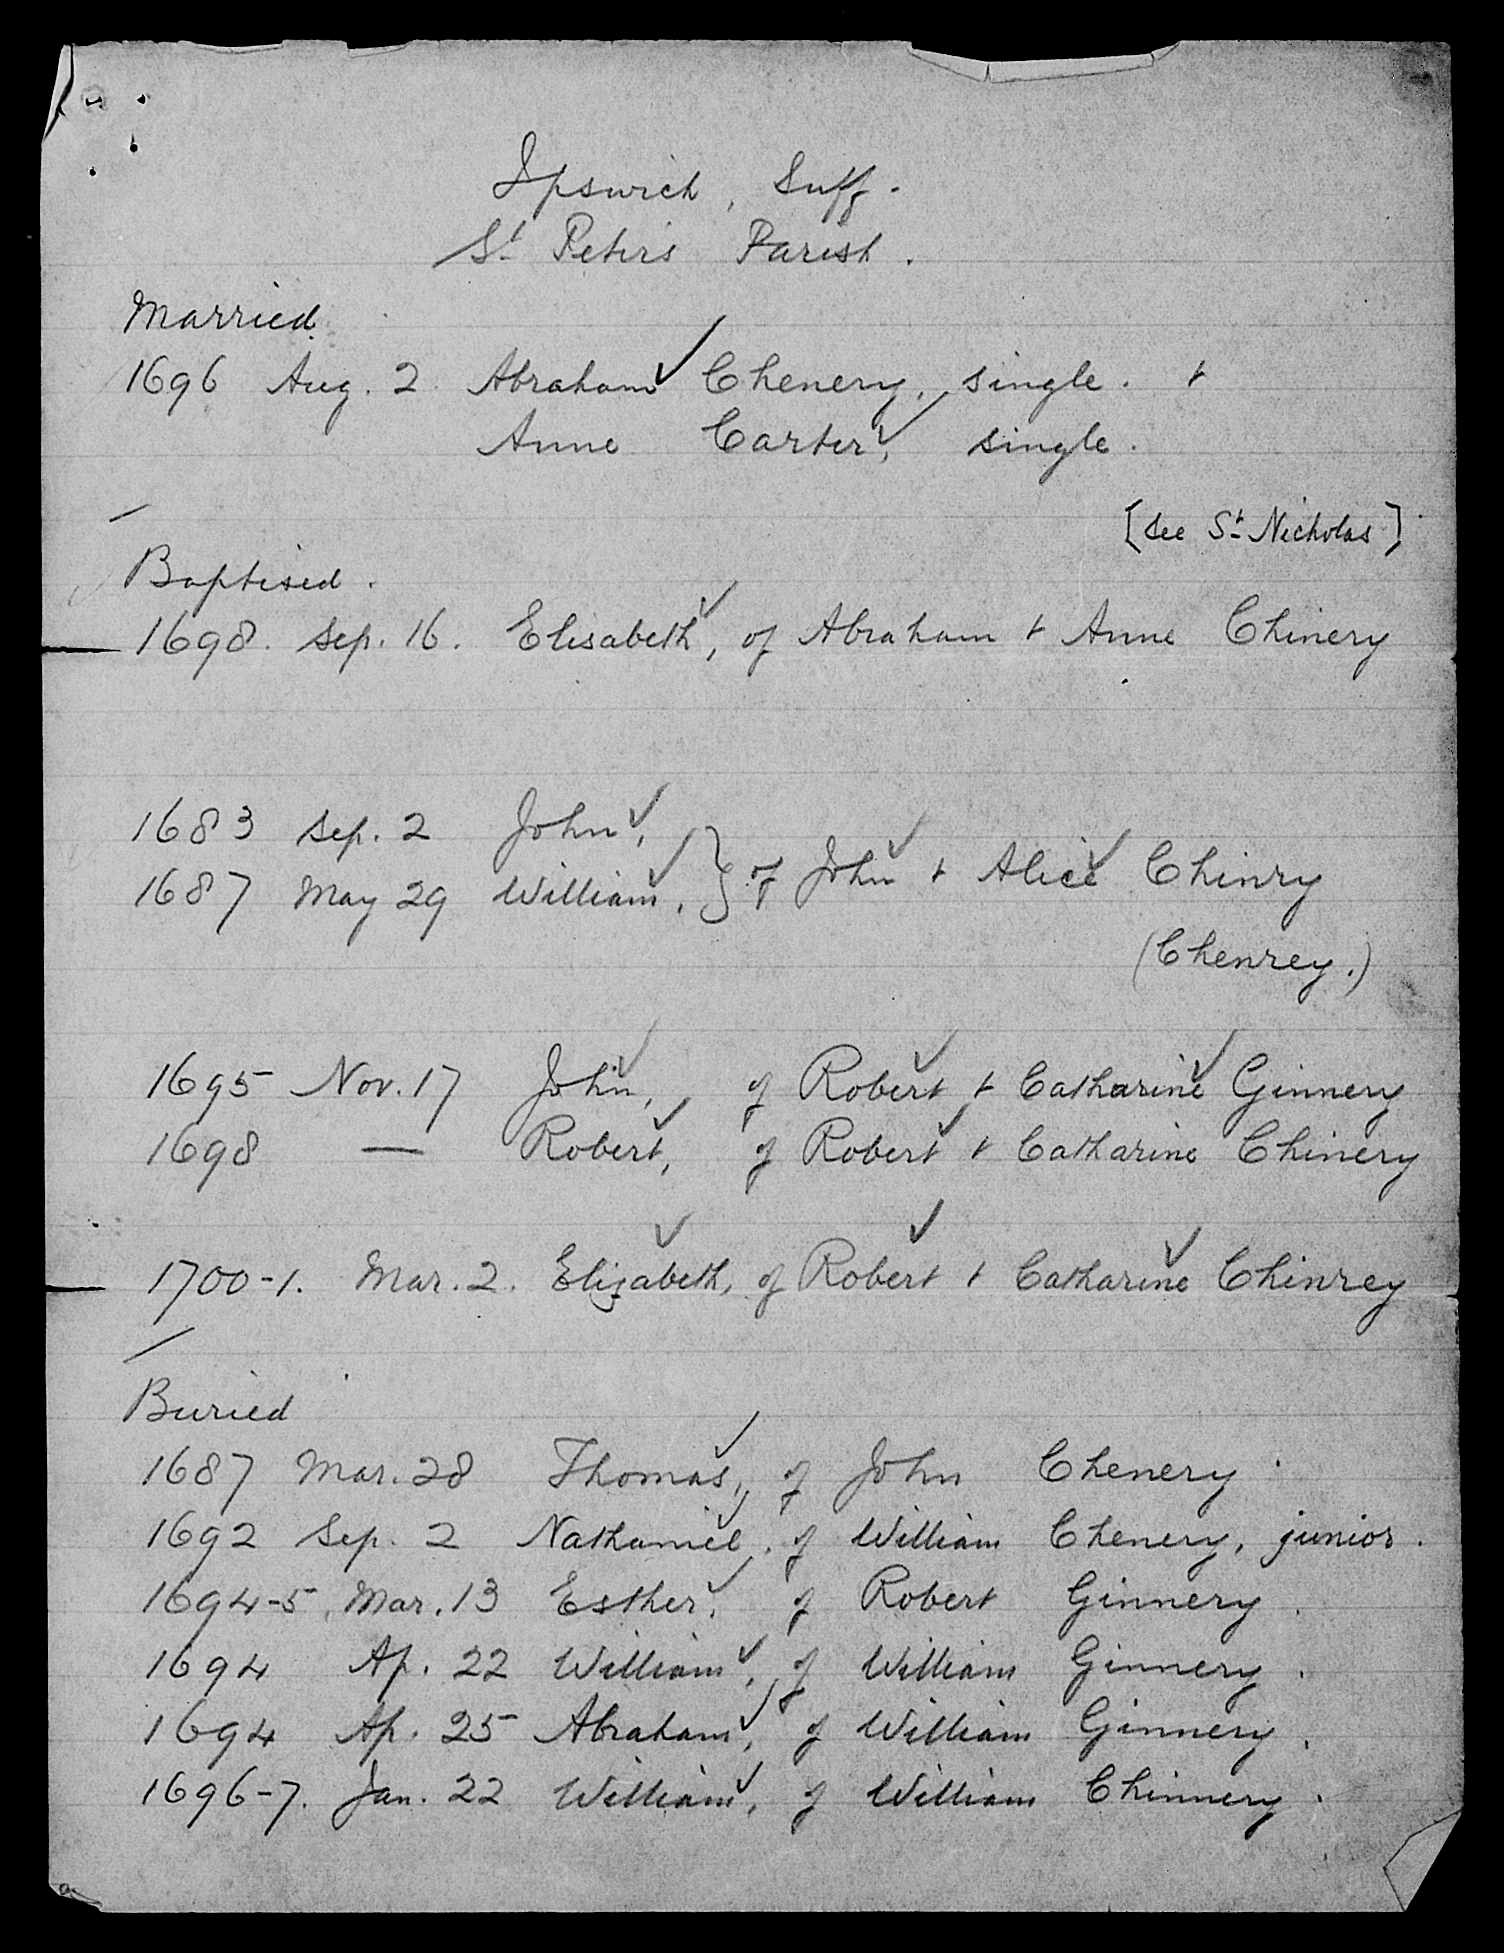 Ipswich, Suff.
St. Peters Parish.
Married
1696 Aug. 2 Abraham Chenery, single. +
Anne Carter, single.
[see St. Nicholas]
Baptised.
1698. Sep. 16. Elisabeth, of Abraham + Anne Chinery
1683 Sep. 2 John,
1687 May 29 William, } of John + Alice Chinry
(Chenrey.)
1695 Nov. 17 John, of Robert + Catharine Ginnery
1698 — Robert, of Robert + Catharine Chinery
1700-1. Mar. 2. Elizabeth, of Robert + Catharine Chinrey
Buried
1687 Mar. 28 Thomas, of John Chenery
1692 Sep. 2 Nathaniel, of William Chenery, junior.
1694-5, Mar. 13 Esther, of Robert Ginnery.
1694 Ap. 22 William, of William Ginnery.
1694 Ap. 25 Abraham, of William Ginnery.
1696-7. Jan. 22 William, of William Chinnery.